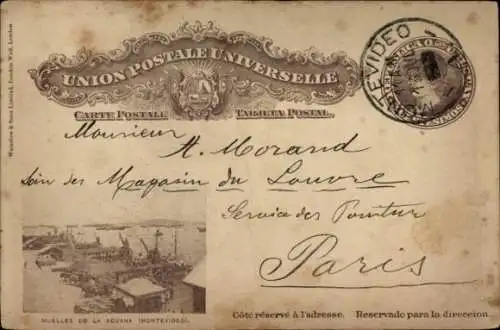 Waterlow & Sons Limited, London Wall, London.
UNION POSTALE UNIVERSELLE
CARTE POSTALE TARJETA POSTAL.
MONTEVIDEO
Monsieur
A. Morand
Soin des Magasin du Louvre
Service des
Paris
MUELLES DE LA ADUANA (MONTEVIDEO).
Côté réservé à l'adresse. Reservado para la direccion.